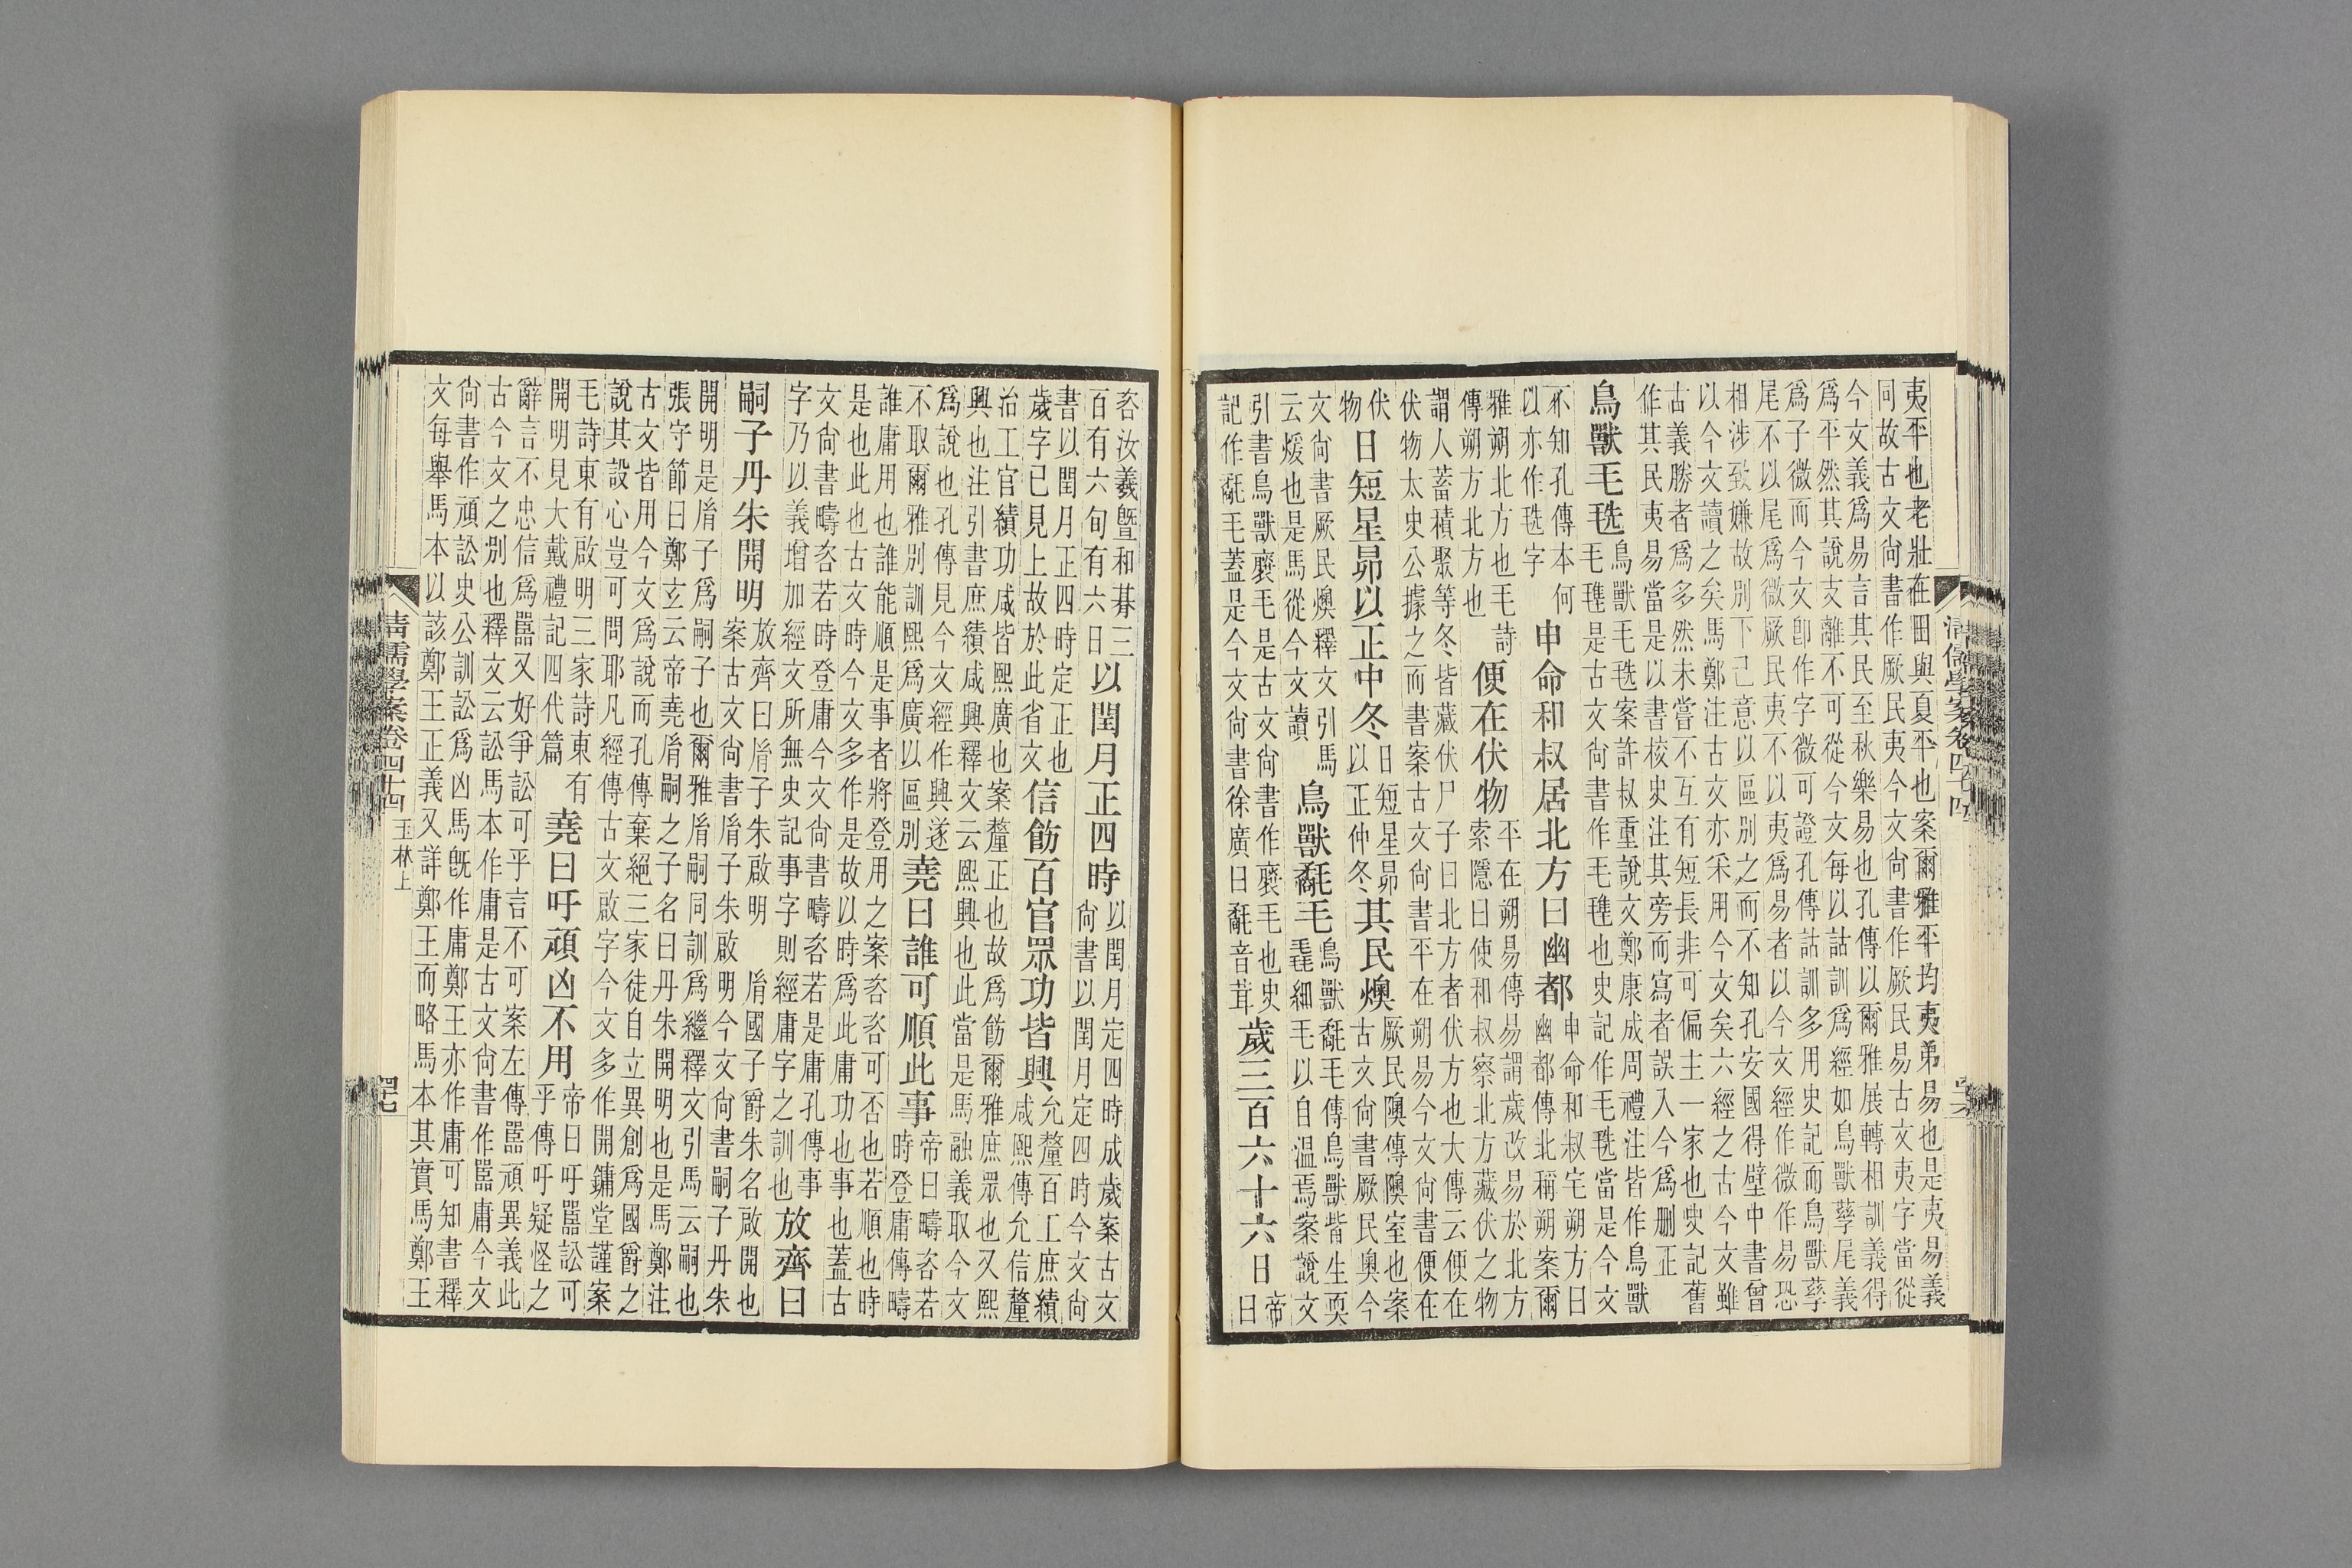 清儒學案卷四十四
夷平也老壯在田與夏平也案爾雅平均夷弟易也是夷易義
同故古文尚書作厥民夷今文尚書作厥民易古文夷字當從
今文義爲易言其民至秋樂易也孔傳以爾雅展轉相訓義得
爲平然其說支離不可從今文每以詁訓爲經如鳥獸孳尾義
爲子微而今文卽作字微可證孔傳詁訓多用史記而鳥獸孳
尾不以尾爲微厥民夷不以夷爲易者以今文經作微作易恐
相涉致嫌故別下己意以區別之而不知孔安國得壁中書曾
以今文讀之矣馬鄭注古文亦采用今文矣六經之古今文雖
古義勝者爲多然未嘗不互有短長非可偏主一家也史記舊
作其民夷易當是以書核史注其旁而寫者誤入今爲刪正
鳥獸毛毨
鳥獸毛毨案許叔重說文鄭康成周禮注皆作鳥獸
毛毴是古文尚書作毛毴也史記作毛毨當是今文
不知孔傳本何
以亦作毨字
申命和叔居北方曰幽都
申命和叔宅朔方曰
幽都傳北稱朔案爾
雅朔北方也毛詩
傳朔方北方也
便在伏物
平在朔易傳易謂歲改易於北方
索隱曰使和叔察北方藏伏之物
謂人蓄積聚等冬皆藏伏尸子曰北方者伏方也大傳云便在
伏物太史公據之而書案古文尚書平在朔易今文尚書便在
伏
物
日短星昴以正中冬
日短星昴
以正仲冬
其民燠
厥民隩傳隩室也案
古文尚書厥民奧今
文尚書厥民燠釋文引馬
云煖也是馬從今文讀
鳥獸氄毛
鳥獸氄毛傳鳥獸皆生耎
毳細毛以自溫焉案說文
引書鳥獸褎毛是古文尚書作褎毛也史
記作氄毛蓋是今文尚書徐廣曰氄音茸
歲三百六十六日
帝
曰
咨汝羲暨和朞三
百有六旬有六日
以閏月正四時
以閏月定四時成歲案古文
尚書以閏月定四時今文尚
書以閏月正四時定正也
歲字已見上故於此省文
信飭百官眾功皆興
允釐百工庶績
咸熙傳允信釐
治工官績功咸皆熙廣也案釐正也故爲飭爾雅庶眾也又熙
興也注引書庶績咸興釋文云熙興也此當是馬融義取今文
爲說也孔傳見今文經作興遂
不取爾雅別訓熙爲廣以區別
堯曰誰可順此事
帝曰疇咨若
時登庸傳疇
誰庸用也誰能順是事者將登用之案咨咨可否也若順也時
是也此也古文時今文多作是故以時爲此庸功也事也蓋古
文尚書疇咨若時登庸今文尚書疇咨若是庸孔傳事
字乃以義增加經文所無史記事字則經庸字之訓也
放齊曰
嗣子丹朱開明
放齊曰胤子朱啟明 胤國子爵朱名啟開也
案古文尚書胤子朱啟明今文尚書嗣子丹朱
開明是胤子爲嗣子也爾雅胤嗣同訓爲繼釋文引馬云嗣也
張守節曰鄭玄云帝堯胤嗣之子名曰丹朱開明也是馬鄭注
古文皆用今文爲說而孔傳棄絕三家徒自立異創爲國爵之
說其設心豈可問耶凡經傳古文啟字今文多作開鏞堂謹案
毛詩東有啟明三家詩東有
開明見大戴禮記四代篇
堯曰吁頑凶不用
帝曰吁嚚訟可
乎傳吁疑怪之
辭言不忠信爲嚚又好爭訟可乎言不可案左傳嚚頑異義此
古今文之別也釋文云訟馬本作庸是古文尚書作嚚庸今文
尚書作頑訟史公訓訟爲凶馬旣作庸鄭王亦作庸可知書釋
文每舉馬本以該鄭王正義又詳鄭王而略馬本其實馬鄭王
清儒學案卷四十四
玉林上